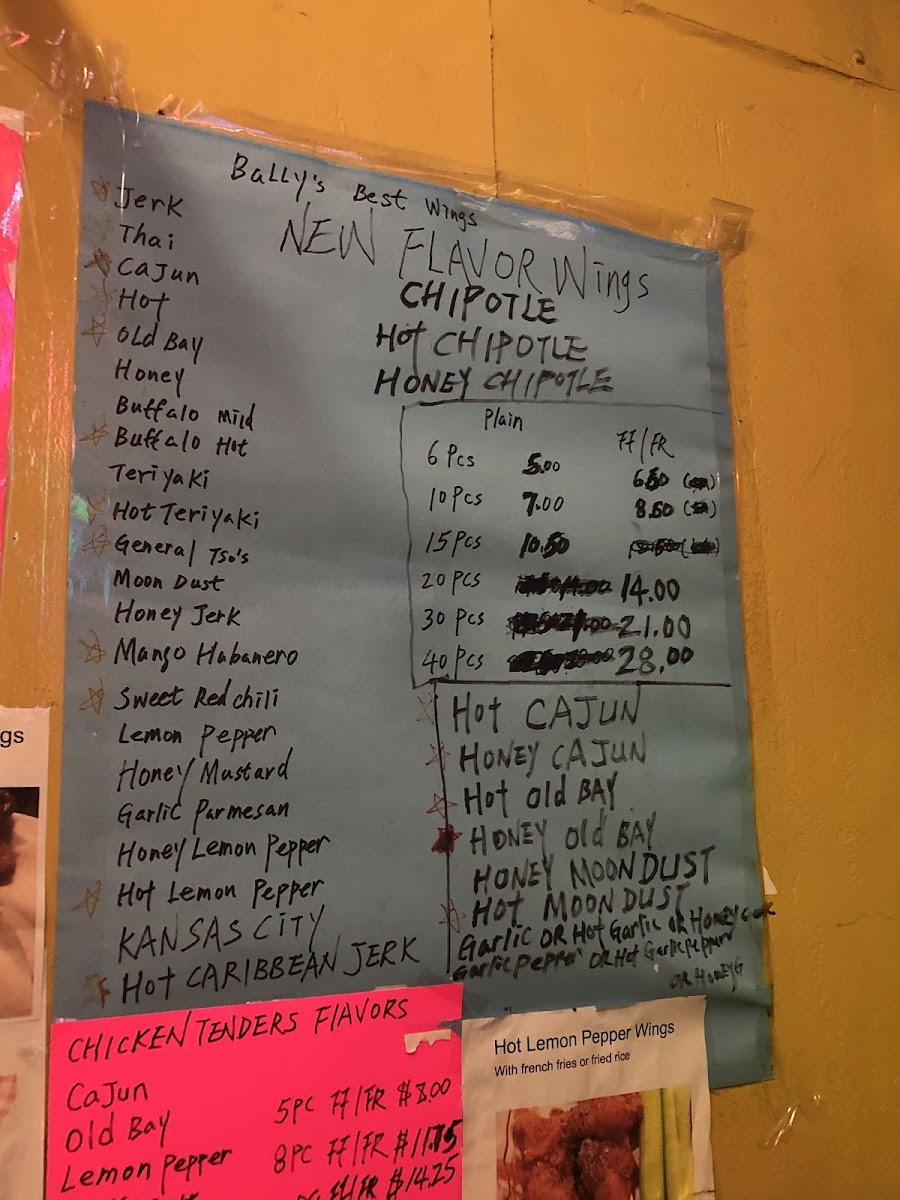 Bally's Best Wings
Jerk
Thai
Cajun
Hot
Old Bay
Honey
Buffalo Mild
Buffalo Hot
Teriyaki
Hot Teriyaki
General Tso's
Moon Dust
Honey Jerk
Mango Habanero
Sweet Red chili
Lemon Pepper
Honey Mustard
Garlic Parmesan
Honey Lemon Pepper
Hot Lemon Pepper
KANSAS CITY
Hot CARIBBEAN JERK
NEW FLAVOR Wings
CHIPOTLE
Hot CHIPOTLE
HONEY CHIPOTLE
Plain FF/FR
6 Pcs 5.00 6.50
10 Pcs 7.00 8.50
15 Pcs 10.50
20 Pcs 14.00
30 Pcs 21.00
40 Pcs 28.00
Hot CAJUN
HONEY CAJUN
Hot Old BAY
HONEY Old BAY
HONEY MOONDUST
Hot MOON DUST
Garlic OR Hot Garlic OR Honey
Garlic pepper OR Hot Garlic pepper
OR HONEY G
gs
CHICKEN TENDERS FlAVORS
Cajun
Old Bay 5PC FF/FR $8.00
Lemon Pepper 8PC FF/FR $11.75
FF/FR $14.25
Hot Lemon Pepper Wings
With french fries or fried rice